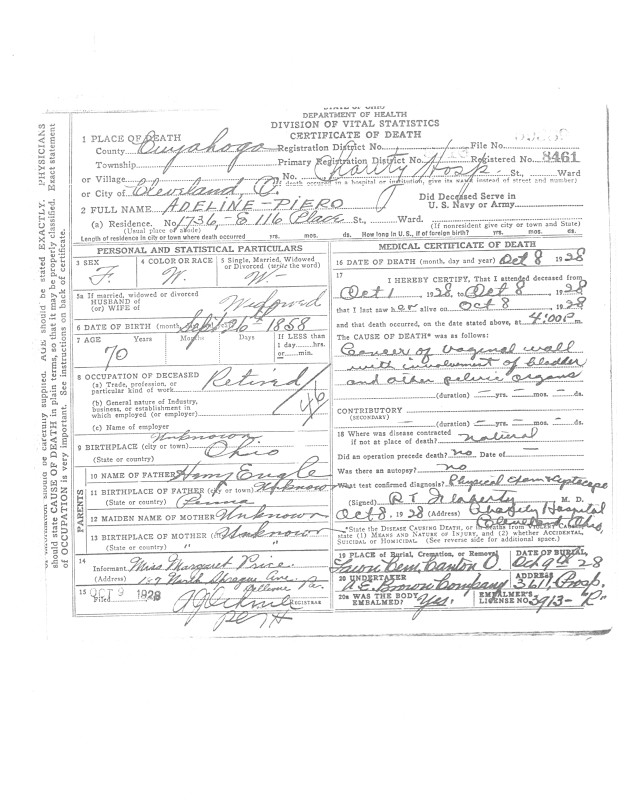 STATE OF OHIO
DEPARTMENT OF HEALTH
DIVISION OF VITAL STATISTICS
CERTIFICATE OF DEATH
1 PLACE OF DEATH
County Cuyahoga Registration District No. File No.
Township Primary Registration District No. Registered No. 8461
or Village No. Charity Hosp. St., Ward
(If death occurred in a hospital or institution, give its NAME instead of street and number)
or City of Cleveland, O.
Did Deceased Serve in
U. S. Navy or Army
2 FULL NAME ADELINE - PIERO
(a) Residence. No. 1736 - E 116 Place St., Ward.
(Usual place of abode) (If nonresident give city or town and State)
Length of residence in city or town where death occurred yrs. mos. ds. How long in U. S., if of foreign birth? yrs. mos. ds.
PERSONAL AND STATISTICAL PARTICULARS
3 SEX F.
4 COLOR OR RACE W.
5 Single, Married, Widowed or Divorced (write the word) W-
5a If married, widowed or divorced
HUSBAND of
(or) WIFE of Widowed
6 DATE OF BIRTH (month, day, and year) Sept 26th 1858
7 AGE Years Months Days If LESS than
1 day......hrs.
or......min.
70
8 OCCUPATION OF DECEASED
(a) Trade, profession, or
particular kind of work Retired
(b) General nature of Industry,
business, or establishment in
which employed (or employer)
(c) Name of employer
9 BIRTHPLACE (city or town) Unknown
(State or country) Ohio
PARENTS
10 NAME OF FATHER Henry Engle
11 BIRTHPLACE OF FATHER (city or town) Unknown
(State or country)
12 MAIDEN NAME OF MOTHER Unknown
13 BIRTHPLACE OF MOTHER (city or town) Unknown
(State or country) " "
14 Informant Miss Margaret Price
(Address) 187 North Sprague Ave.
Bellevue Pa.
15 Filed OCT 9 1928 REGISTRAR
MEDICAL CERTIFICATE OF DEATH
16 DATE OF DEATH (month, day and year) Oct 8 1928
17 I HEREBY CERTIFY, That I attended deceased from
Oct 1, 1928, to Oct 8, 1928
that I last saw her alive on Oct 8, 1928
and that death occurred, on the date stated above, at 4:00 P m.
The CAUSE OF DEATH* was as follows:
Cancer of vaginal wall
with involvement of bladder
and other pelvic organs
(duration) — yrs. — mos. — ds.
CONTRIBUTORY —
(SECONDARY)
(duration) — yrs. — mos. — ds.
18 Where was disease contracted
if not at place of death? natural
Did an operation precede death? no Date of —
Was there an autopsy? no
What test confirmed diagnosis? Physical Exam
(Signed) R T Flaherty M. D.
Oct 8, 1928 (Address) Charity Hospital
Cleveland, Ohio
*State the DISEASE CAUSING DEATH, or in deaths from VIOLENT CAUSES,
state (1) MEANS AND NATURE OF INJURY, and (2) whether ACCIDENTAL,
SUICIDAL or HOMICIDAL. (See reverse side for additional space.)
19 PLACE of Burial, Cremation, or Removal DATE OF BURIAL
Canton O. Oct 9th 28
20 UNDERTAKER ADDRESS
Brown Company 3611 Prosp.
20a WAS THE BODY
EMBALMED? Yes.
EMBALMER'S
LICENSE NO. 3913-"R"
should be carefully supplied. AGE should be stated EXACTLY. PHYSICIANS
should state CAUSE OF DEATH in plain terms, so that it may be properly classified. Exact statement
of OCCUPATION is very important. See instructions on back of certificate.